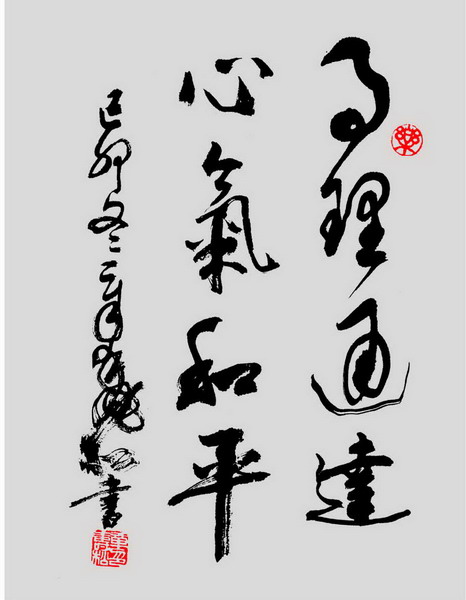 事理通達
心氣和平
己卯冬松書